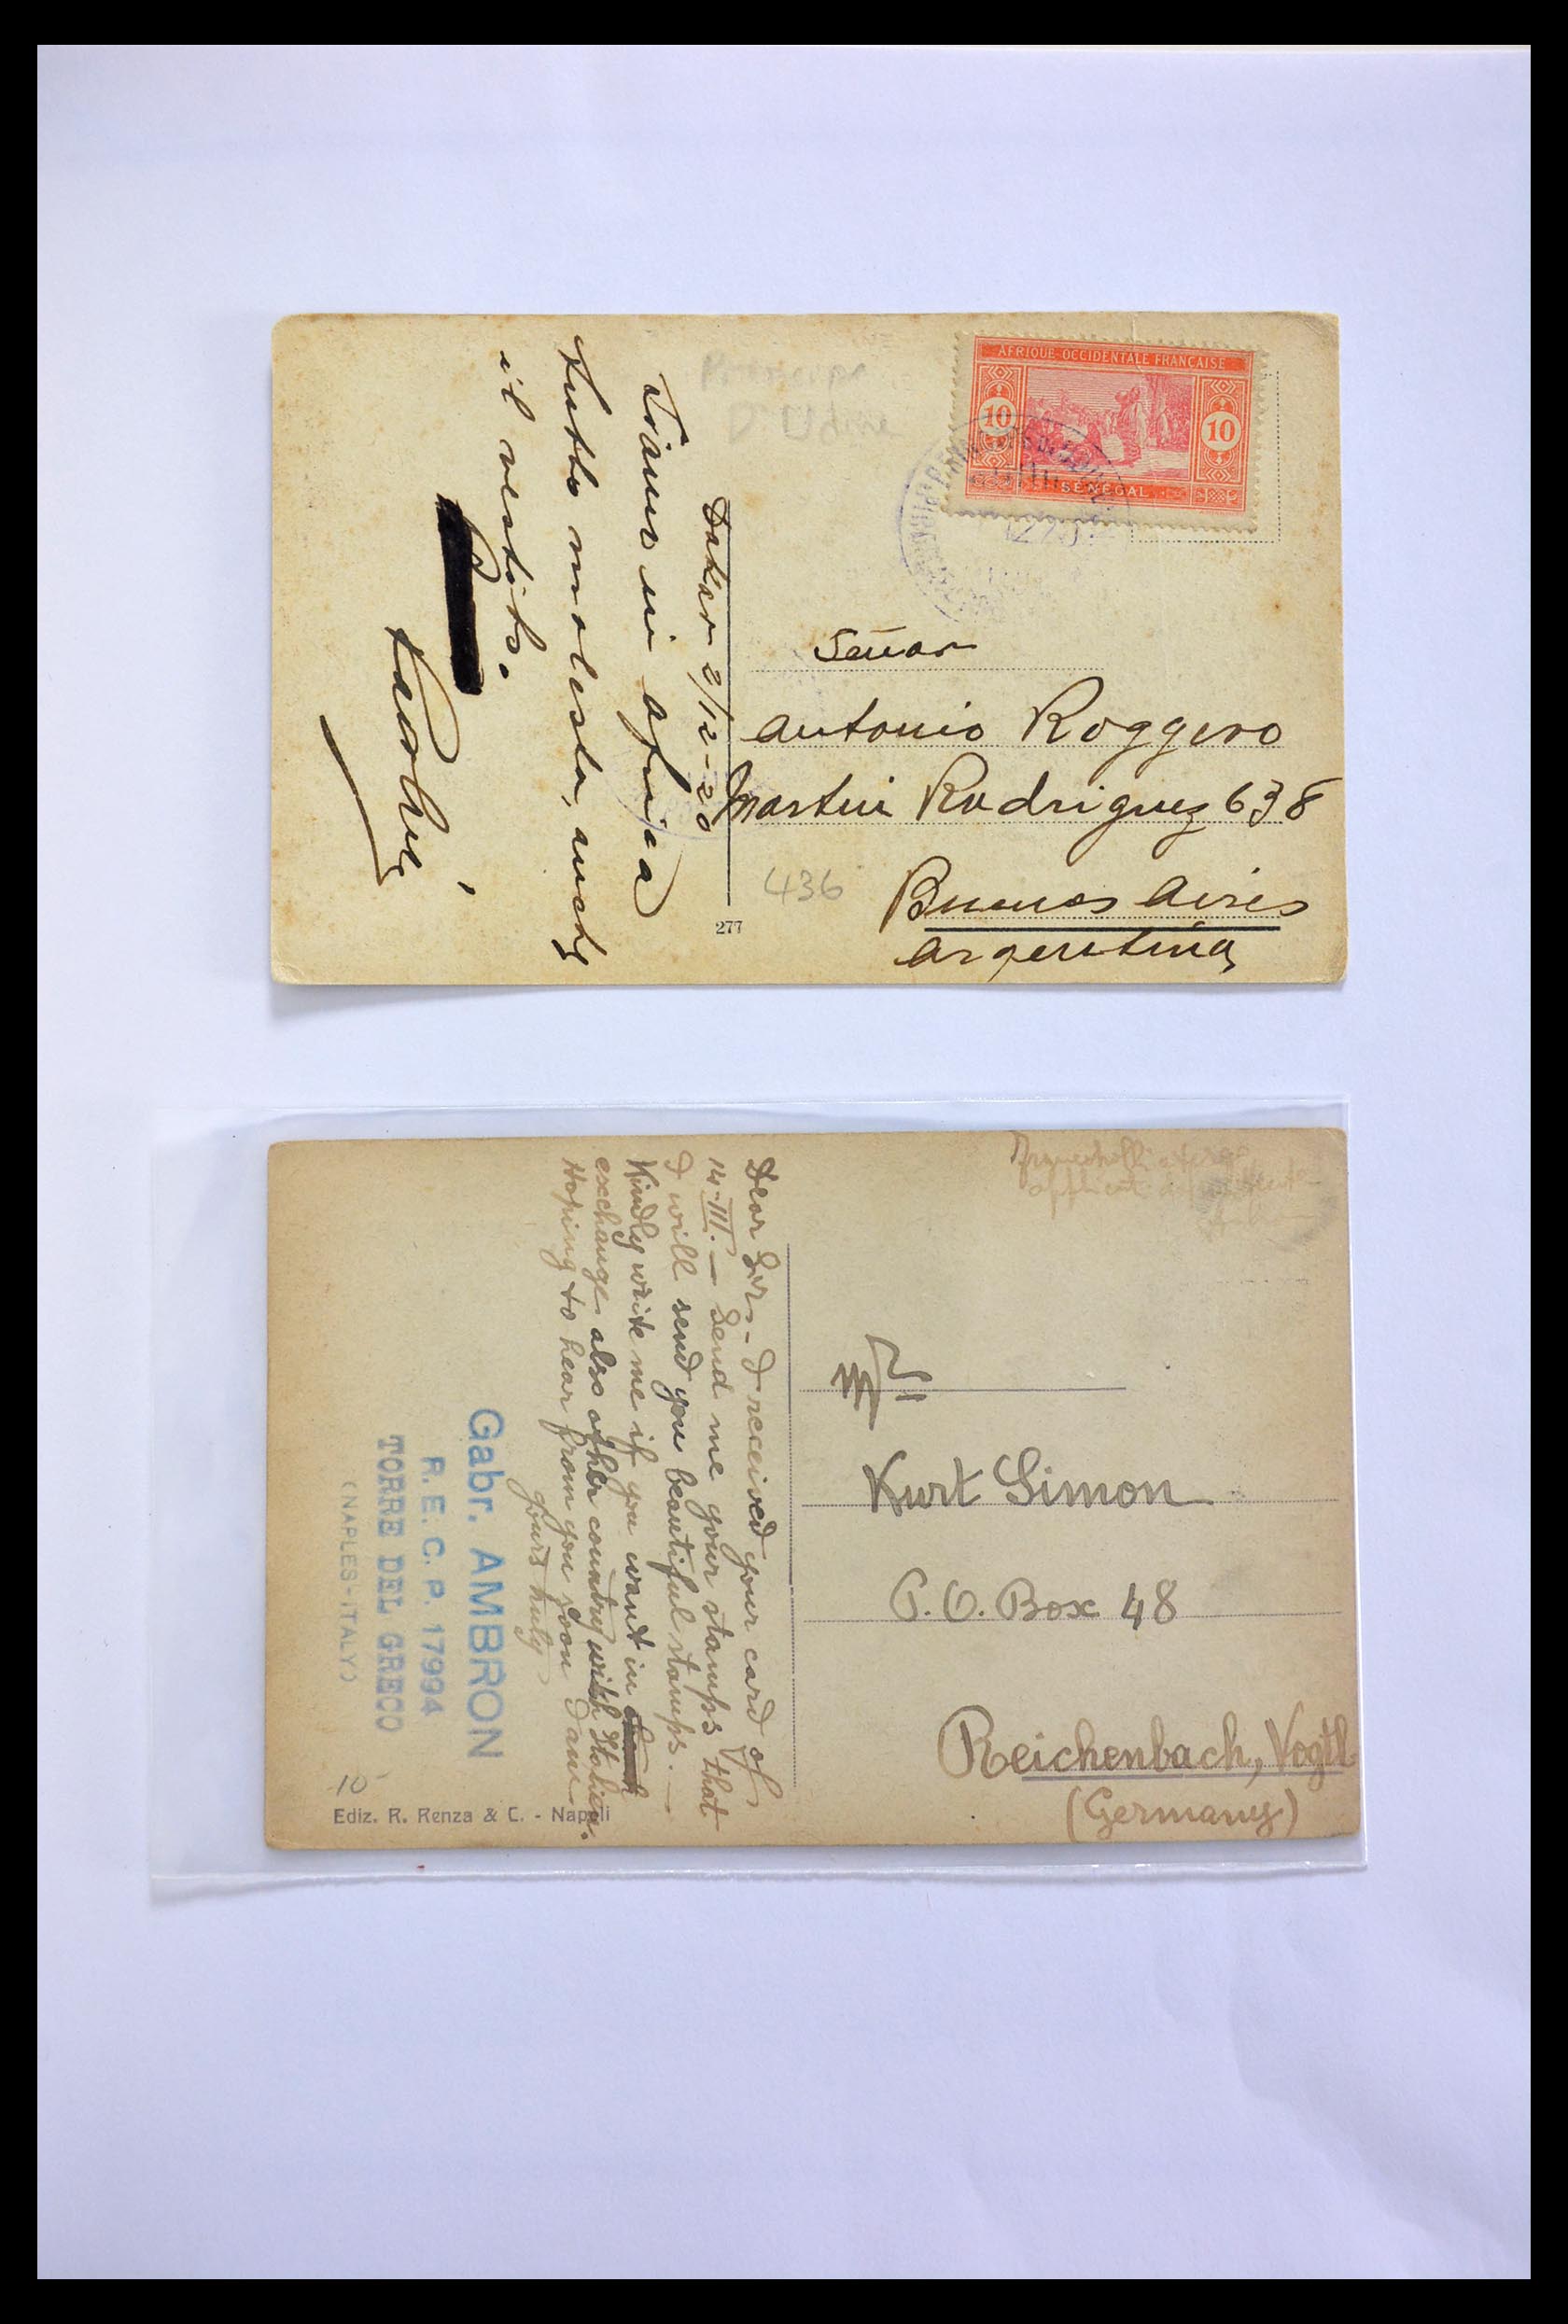 AFRIQUE OCCIDENTALE FRANÇAISE
10
10
SÉNÉGAL
Principe
D. Udine
Dakar 2/12-20
Siamo in africa
tutto molesta, anche
il vestito.
Señor
Antonio Roggero
Martin Rodriguez 638
Buenos Aires
Argentina
436
277
Dear Sir, - I received your card of
14-III. - Send me your stamps that
I will send you beautiful stamps. -
Kindly write me if you want in
exchange also other country with Italien.
Hoping to hear from you soon I am
yours truly
Gabr. AMBRON
R. E. C. P. 17994
TORRE DEL GRECO
(NAPLES-ITALY)
10-
Ediz. R. Renza & C. - Napoli
Mr
Kurt Simon
P. O. Box 48
Reichenbach, Vogtl
(Germany)